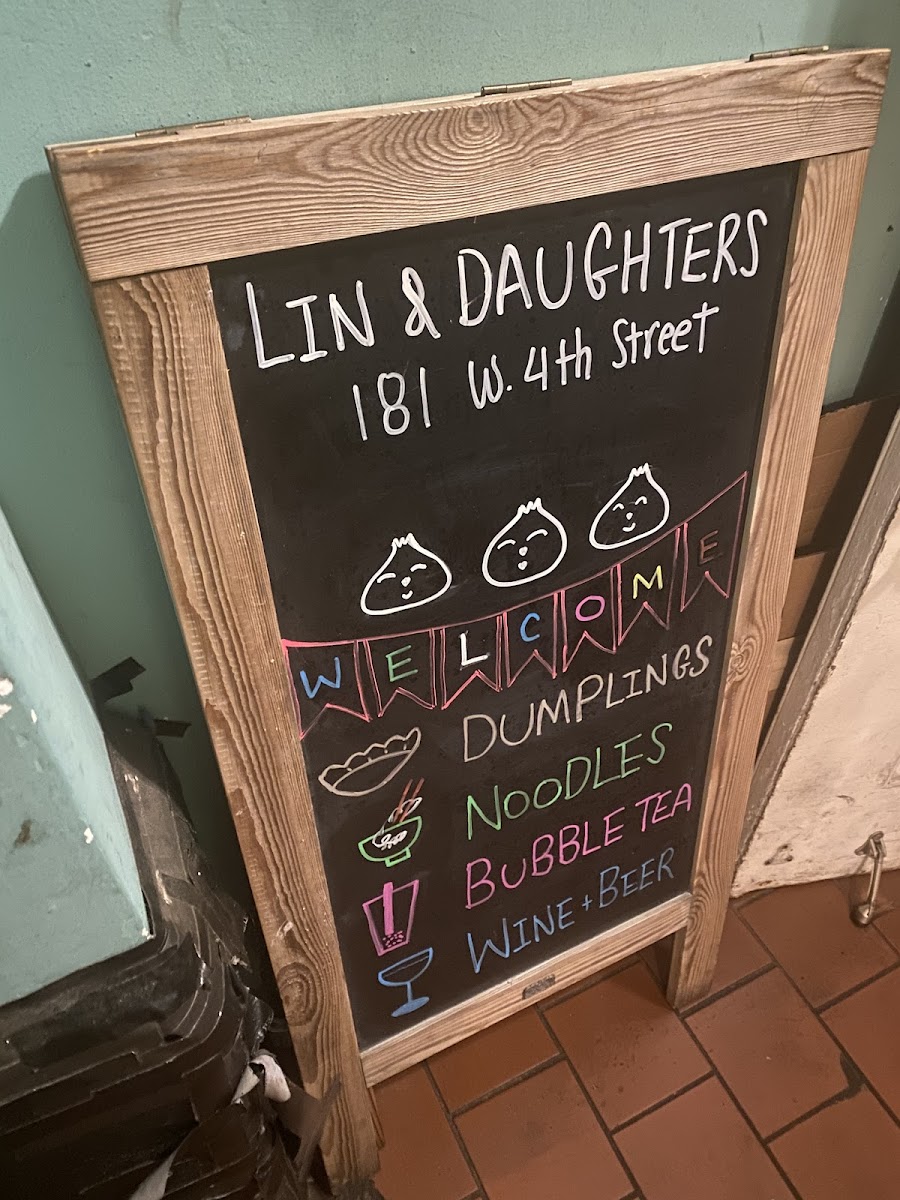 LIN & DAUGHTERS
181 W. 4th Street
WELCOME
DUMPLINGS
NOODLES
BUBBLE TEA
WINE + BEER